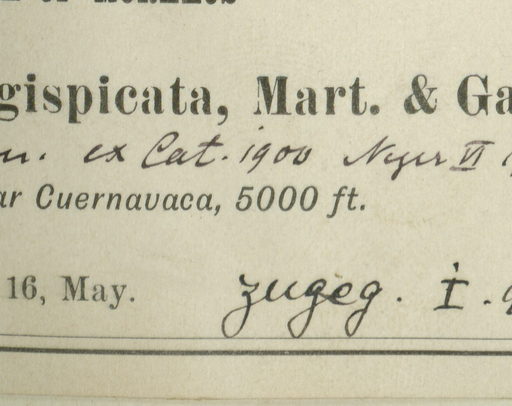 gispicata, Mart. & Ga
ex Cat. 1900 Nyár VI
ar Cuernavaca, 5000 ft.
16, May. zugeg. I.